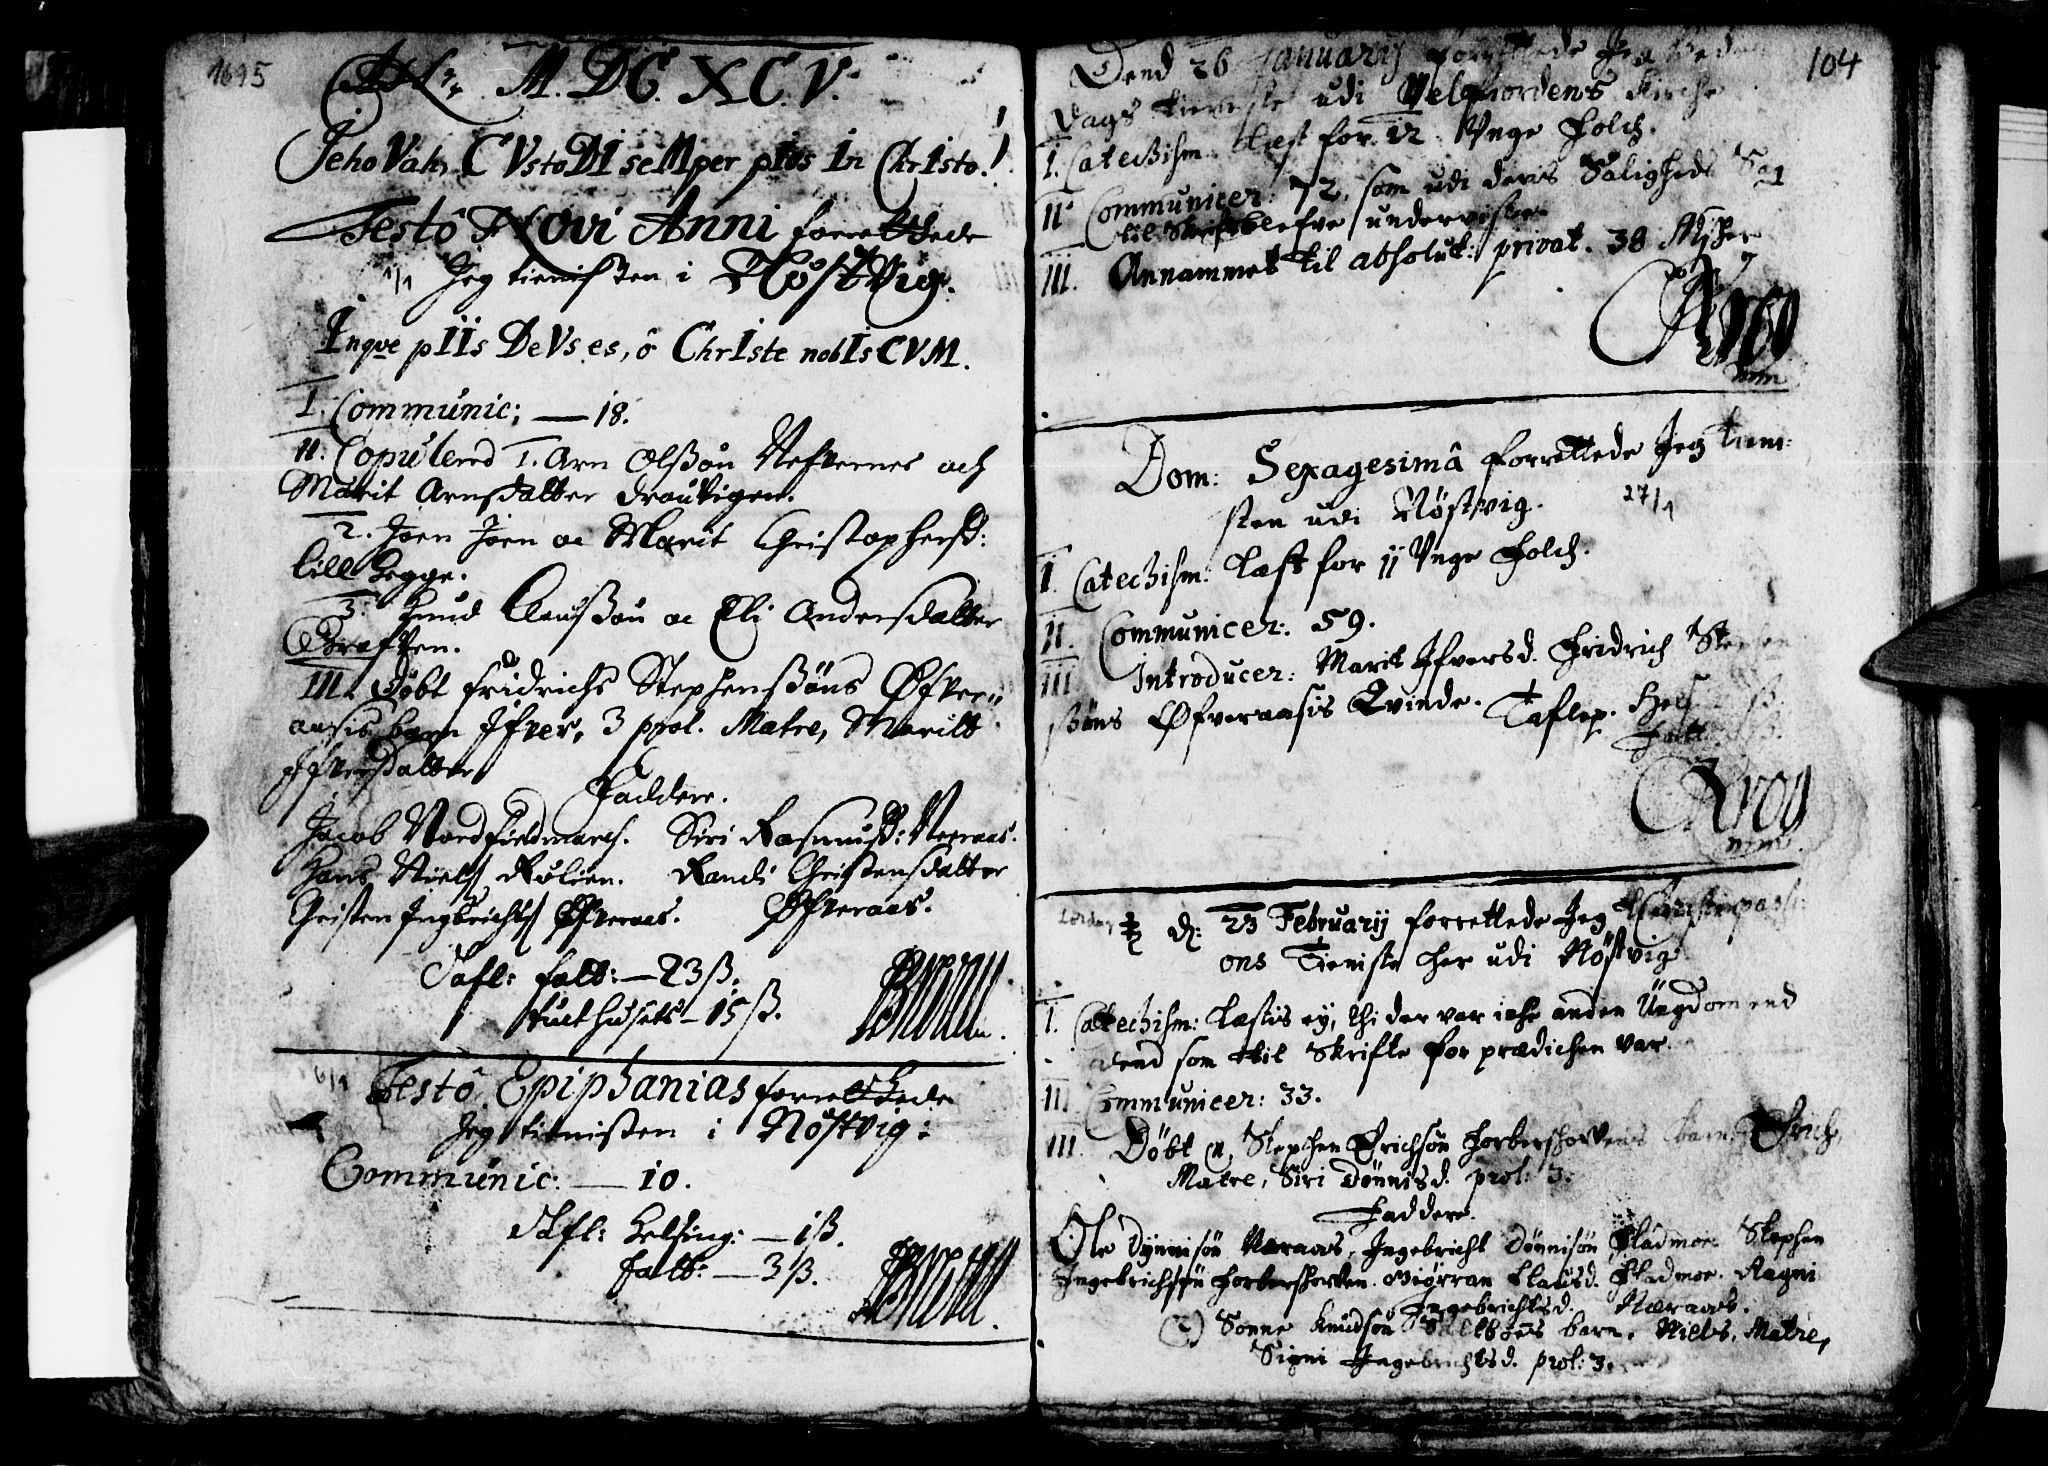 1695
M. DC. XC. V.
JehoVah, CVstoDI seMper pIos In ChrIsto!
Festô Novi Anni forrettede
1/1 Jeg tienisten i Nøstvig.
Inqve pIIs DeVs es, ô ChrIste nobIsCVM.
I. Communic: — 18.
II. Copulered 1. Arn Olßøn Nefvernes och
Marit Arnsdatter Drauvigen.
2. Joen Joen oc Marit Christophersd:
lill Hegge.
3. Knud Clausßøn oc Eli Andersdatter
Graften.
III. Døbt Fridrichs Stephenßøns Øfver-
aasis barn Ifver, 3 prol. Matre, Maritt
Ifversdatter
Faddere.
Jacob Nordfieldmarch. Siri Rasmusd: Neeraas.
Hans Niels Rølien. Randi Christensdatter
Christen Ingbrichts Øfveraas. Øfveraas.
Tafl: fatt: — 23 ß.
tuct husets — 15 ß.
6/1
Festô Epiphanias forrettede
Jeg tienisten i Nøstvig:
Communic: — 10.
Tafl: Helsing: — 1 ß.
fatt: — 3 ß.
104
Dend 26 Januarij forrettede Jeg Bede
dags tieniste udi Velfiordens Kirche
I. Catechism: Læst for 12 Unge Folch.
II. Communicer: 72, som udi deris Saligheds Sag
til Skrifte blefve underviste
III. Annammet til absolut: privat. 38
Krog
mm
Dom: Sexagesimâ forrettede Jeg tieni:
sten udi Nøstvig. 27/1
I. Catechism: Læst for 11 Unge Folch.
II. Communicer: 59.
III Introducer: Marit Ifversd. Fridrich Stephen
ßøns Øfveraasis Qvinde. Taflep. Hels ß.
Fatt ß.
Krog
mm.
Lørdag ♄ d: 23 Februarij forrettede Jeg
ons Tieniste her udi Nøstvig
I. Catechism: Læstis ey, thi der var iche anden Ungdom end
dend som til Skrifte for prædichen var.
II. Communicer: 33.
III. Døbt (1, Stephen Erichsøn Forbershovens barn, Erich,
Matre, Siri Dønnisd. prol: 3.
Faddere.
Ole Dynnisøn Næraas, Ingebricht Dønnisøn Fladmoe. Stephen
Ingebrichsøn Forbershoven. Giørran Clausd. Fladmoe. Ragni
Ingebrichtsd. Næraas.
(2) Sønne Knudsøn barn. Niels, Matre,
Signi Ingebrichtsd. prol: 3.